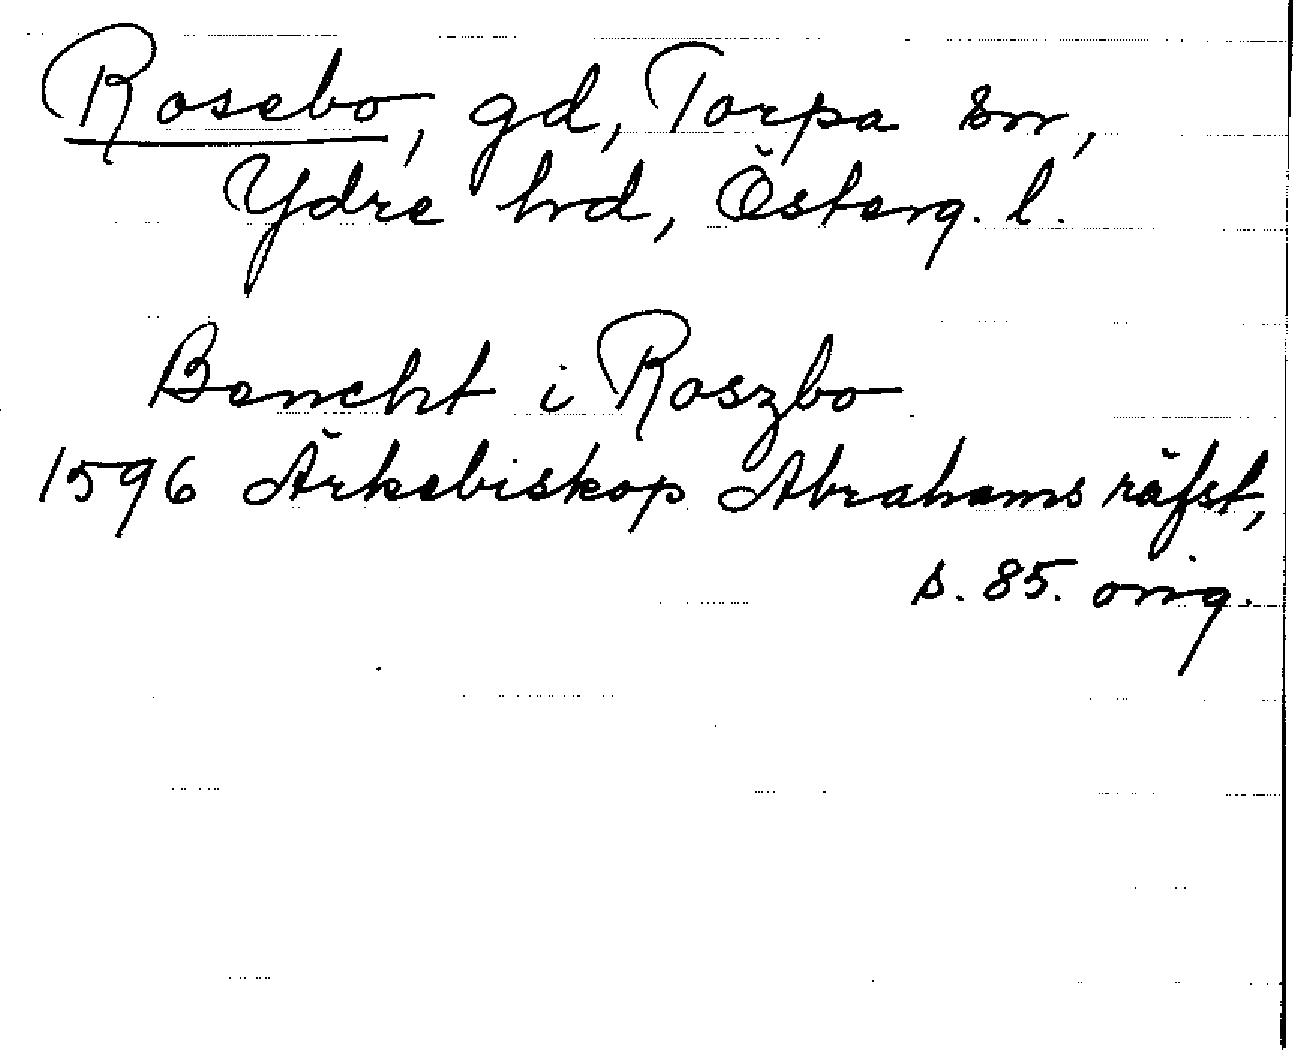 Rosebo, gd, Torpa sn,
Ydre hrd, Österg. l.
Bencht i Roszbo
1596 Ärkebiskop Abrahams räfst,
s. 85. orig.